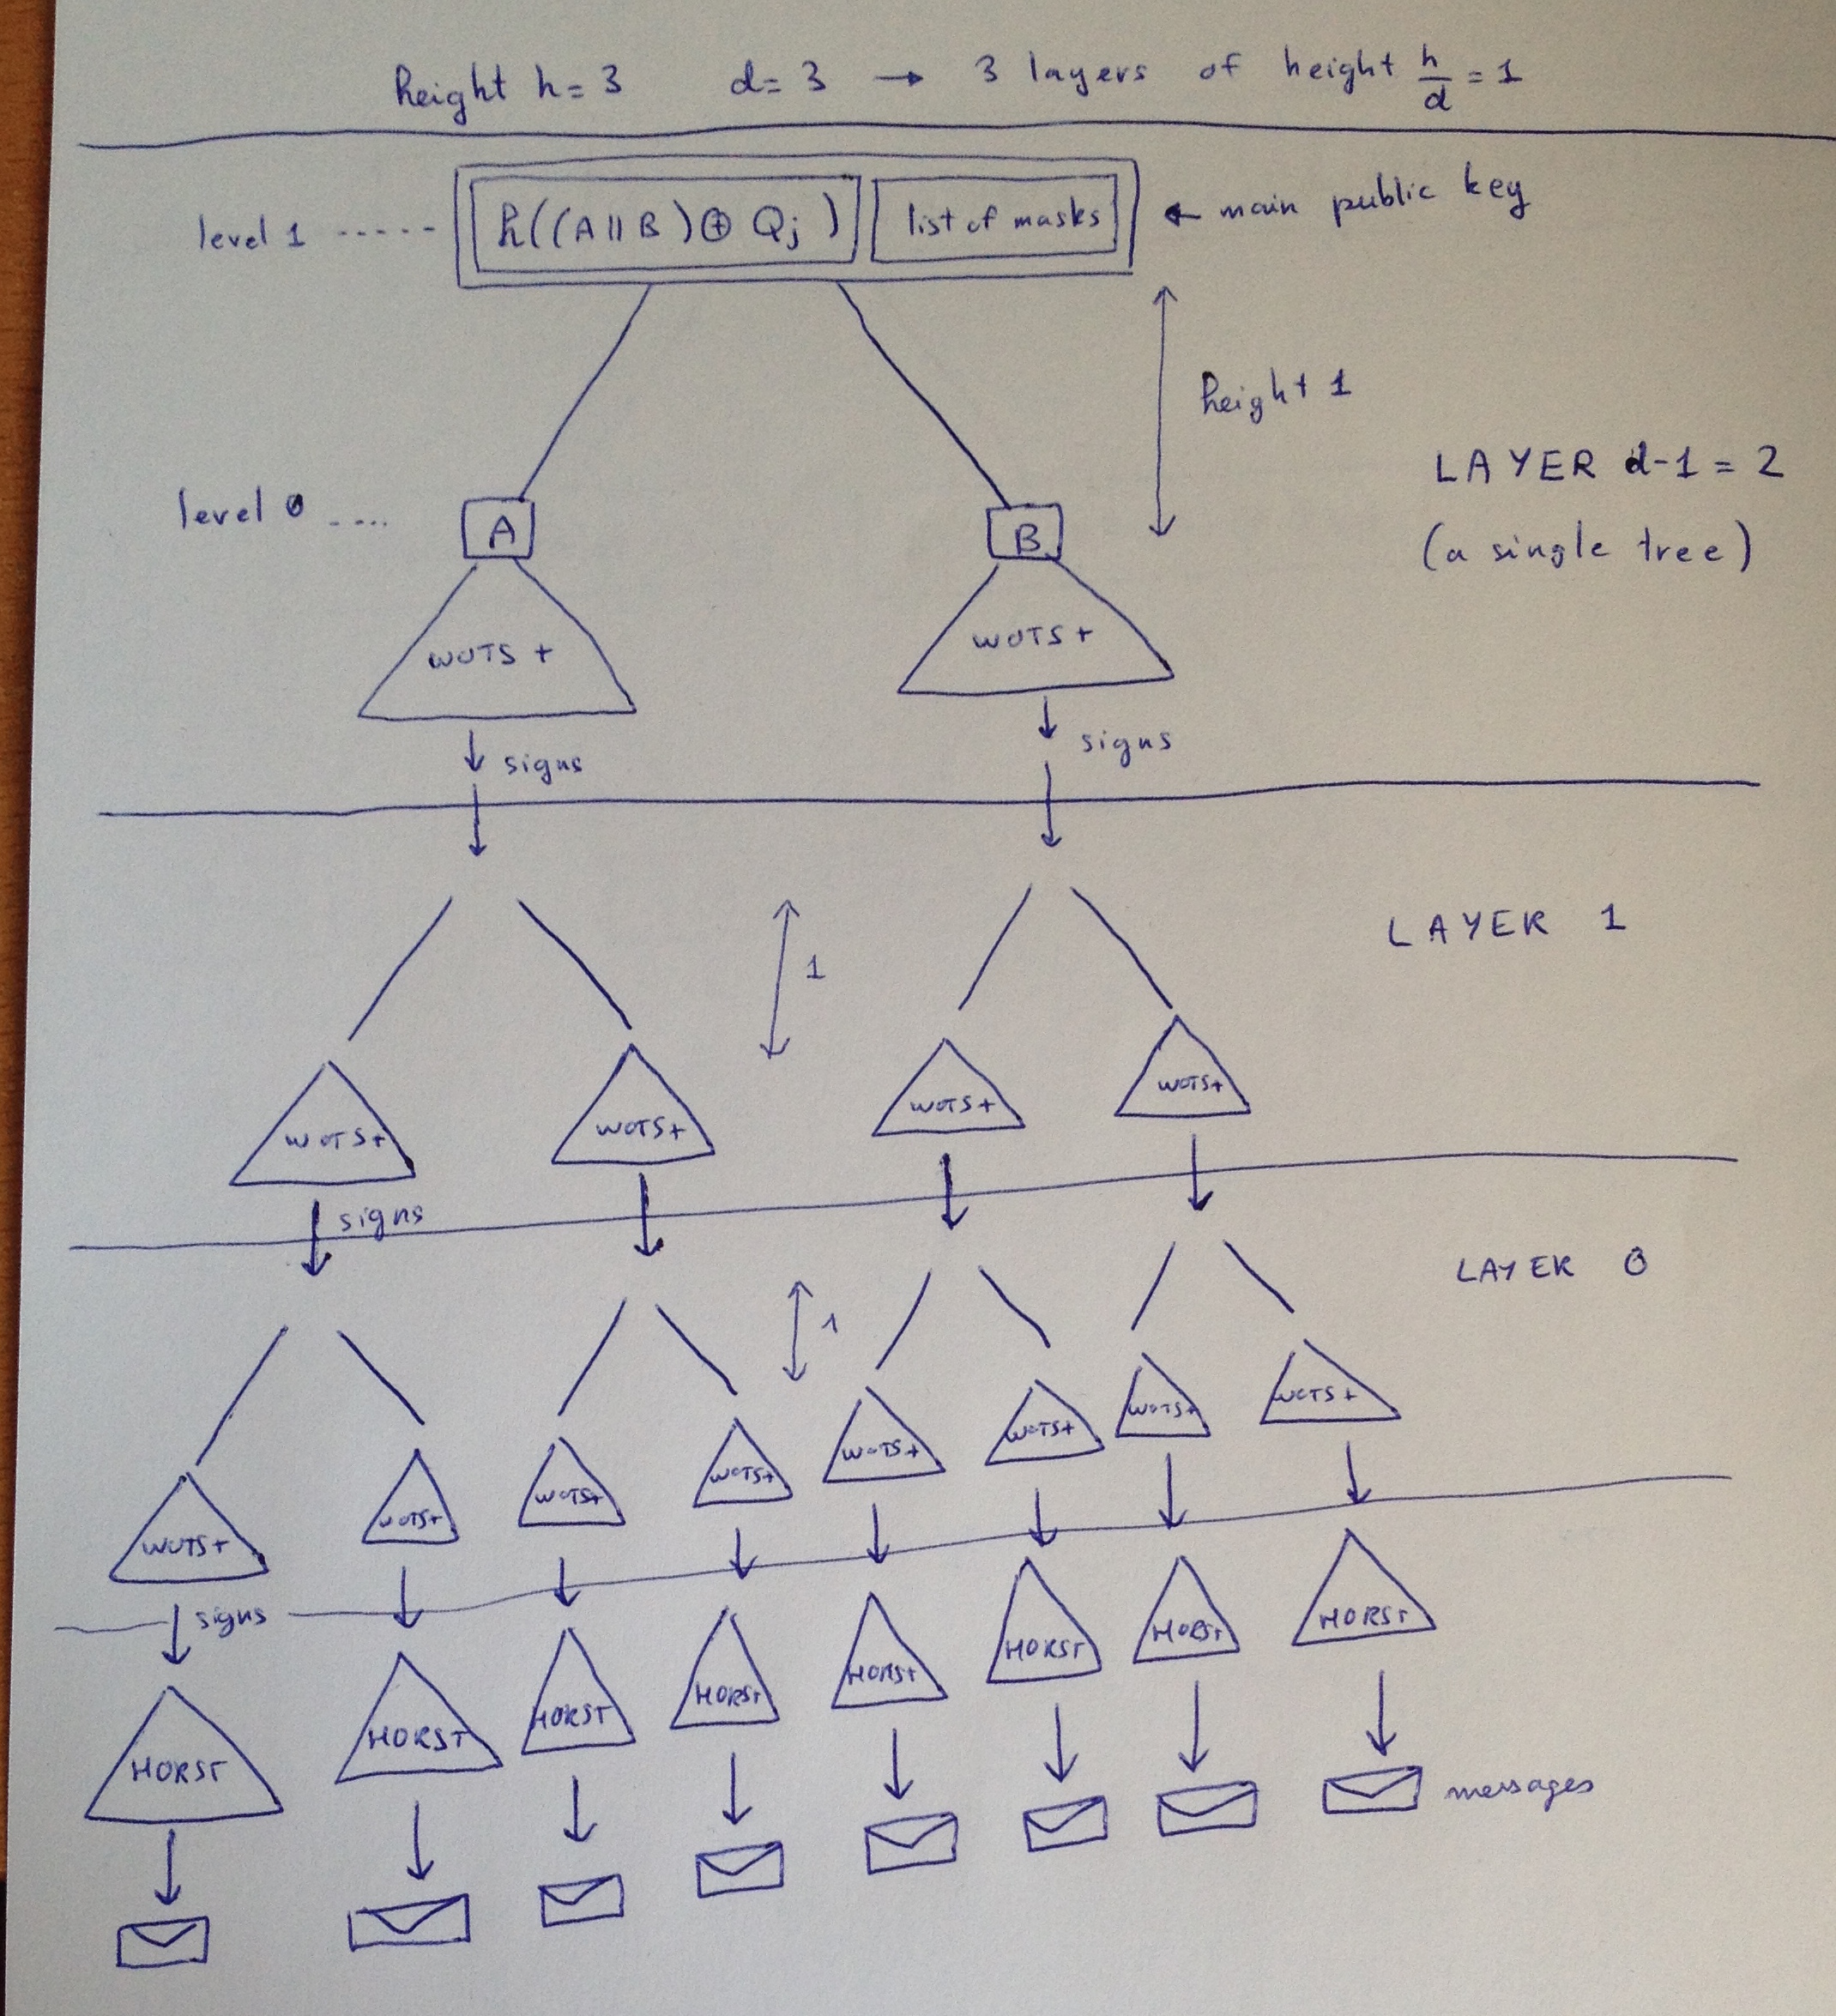 height h = 3 d = 3 → 3 layers of height h/d = 1
level 1 ----- h((A || B) ⊕ Qj) list of masks ← main public key
height 1
LAYER d-1 = 2
level 0 ....
A B
(a single tree)
WOTS + WOTS +
signs signs
LAYER 1
1
WOTS+ WOTS+ WOTS+ WOTS+
signs
LAYER 0
1
WOTS+ WOTS+ WOTS+ WOTS+ WOTS+ WOTS+ WOTS+ WOTS+
signs
HORST HORST HORST HORST HORST HORST HORST HORST
messages